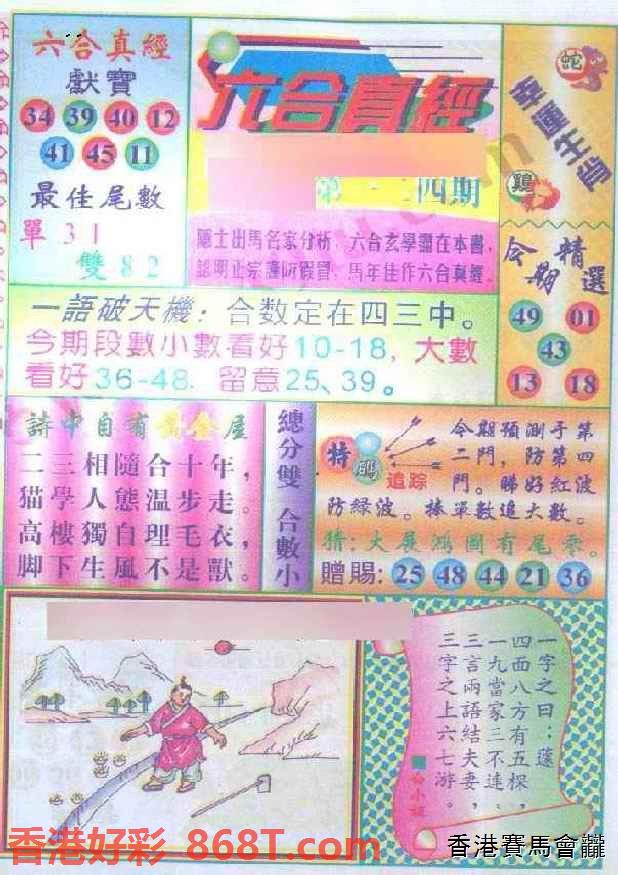 六合真經
獻寶
34 39 40 12
41 45 11
最佳尾數
單31
雙82
六合真經
四期
隱士出馬名家分析，六合玄學盡在本書，
認明正宗謹防假冒，馬年佳作六合真經。
蛇
幸運生肖
鷄
今期精選
49 01
43
13 18
一語破天機：合数定在四三中。
今期段數小數看好10-18，大數
看好36-48．留意25、39。
詩中自有黃金屋
二三相隨合十年，
猫學人態温步走。
高樓獨自理毛衣，
脚下生風不是獸。
總分雙 合數小
特碼追踪
今期預測于第
二門，防第四
門。睇好紅波
防緑波。捧單數追大數。
猜：大展鴻圖有尾零。
贈賜：25 48 44 21 36
一字之曰：蓬
四面八方有五棵，
一九當家三不連；
三言兩語結夫妻，
三字之上六七游。
香港好彩 868T.com
香港賽馬會